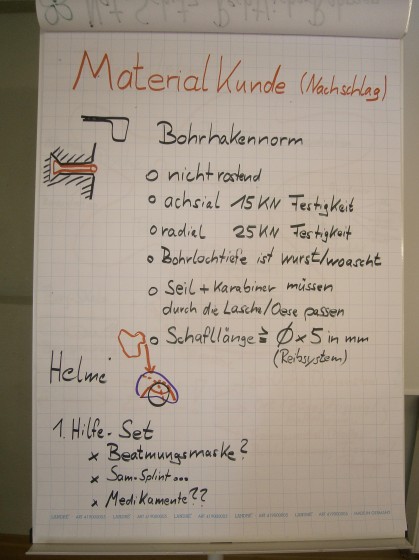 Material Kunde (Nachschlag)
Bohrhakennorm
o nicht rostend
o achsial 15 KN Festigkeit
o radial 25 KN Festigkeit
o Bohrlochtiefe ist wurst/woascht
o Seil + Karabiner müssen
durch die Lasche/Oese passen
o Schaftlänge ≧ Ø x 5 in mm
(Reibsystem)
Helme
1. Hilfe-Set
x Beatmungsmaske?
x Sam-Splint...
x Medikamente??